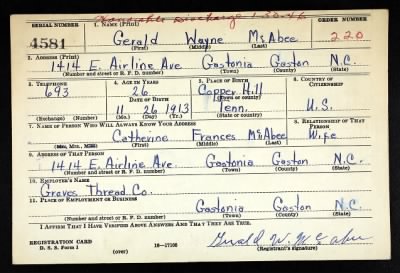 Honorable Discharge 1-30-46
SERIAL NUMBER 1. NAME (Print) ORDER NUMBER
4581 Gerald Wayne McAbee 220
(First) (Middle) (Last)
2. ADDRESS (Print)
1414 E. Airline Ave Gastonia Gaston N.C.
(Number and street or R. F. D. number) (Town) (County) (State)
3. TELEPHONE 4. AGE IN YEARS 5. PLACE OF BIRTH 6. COUNTRY OF CITIZENSHIP
693 26 Copper Hill
DATE OF BIRTH (Town or county)
11 26 1913 Tenn. U.S.
(Exchange) (Number) (Mo.) (Day) (Yr.) (State or country)
7. NAME OF PERSON WHO WILL ALWAYS KNOW YOUR ADDRESS 8. RELATIONSHIP OF THAT PERSON
Catherine Frances McAbee Wife
(Mr., Mrs., Miss) (First) (Middle) (Last)
9. ADDRESS OF THAT PERSON
1414 E. Airline Ave Gastonia Gaston N.C.
(Number and street or R. F. D. number) (Town) (County) (State)
10. EMPLOYER'S NAME
Groves Thread Co.
11. PLACE OF EMPLOYMENT OR BUSINESS
Gastonia Gaston N.C.
(Number and street or R. F. D. number) (Town) (County) (State)
I AFFIRM THAT I HAVE VERIFIED ABOVE ANSWERS AND THAT THEY ARE TRUE.
REGISTRATION CARD
D. S. S. Form 1 (over) 16—17105 Gerald W. McAbee
(Registrant's signature)